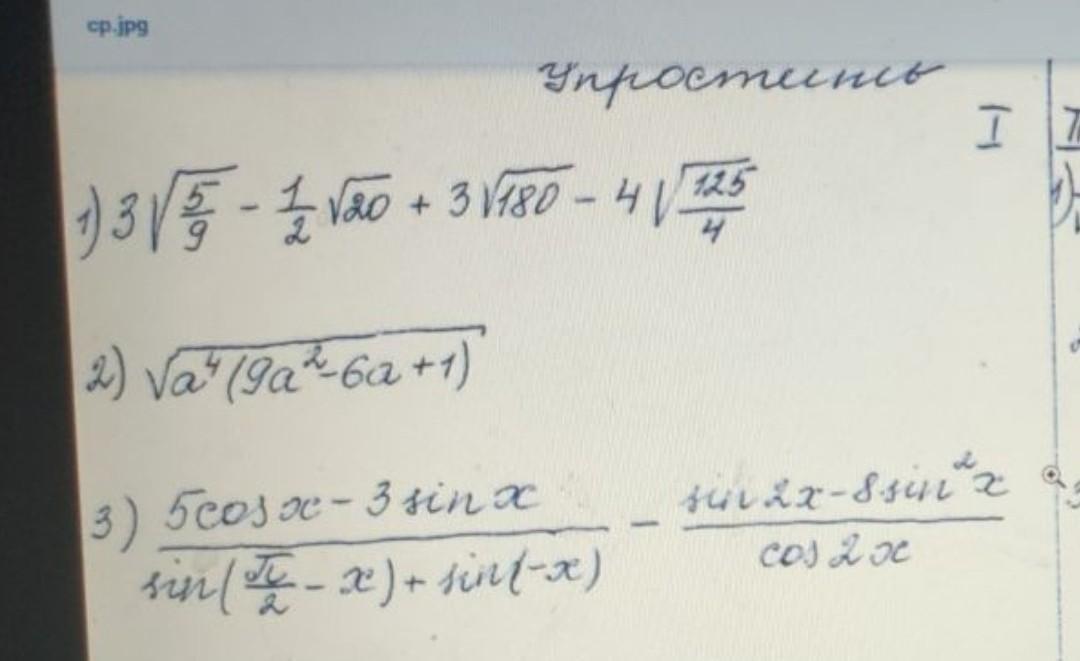 cp.jpg
Упростить
I
1) 3√(5/9) - 1/2 √20 + 3√180 - 4√(125/4)
2) √(a⁴(9a²-6a+1))
3) (5cosx - 3sinx)/(sin(π/2 - x) + sin(-x)) - (sin2x - 8sin²x)/(cos2x)